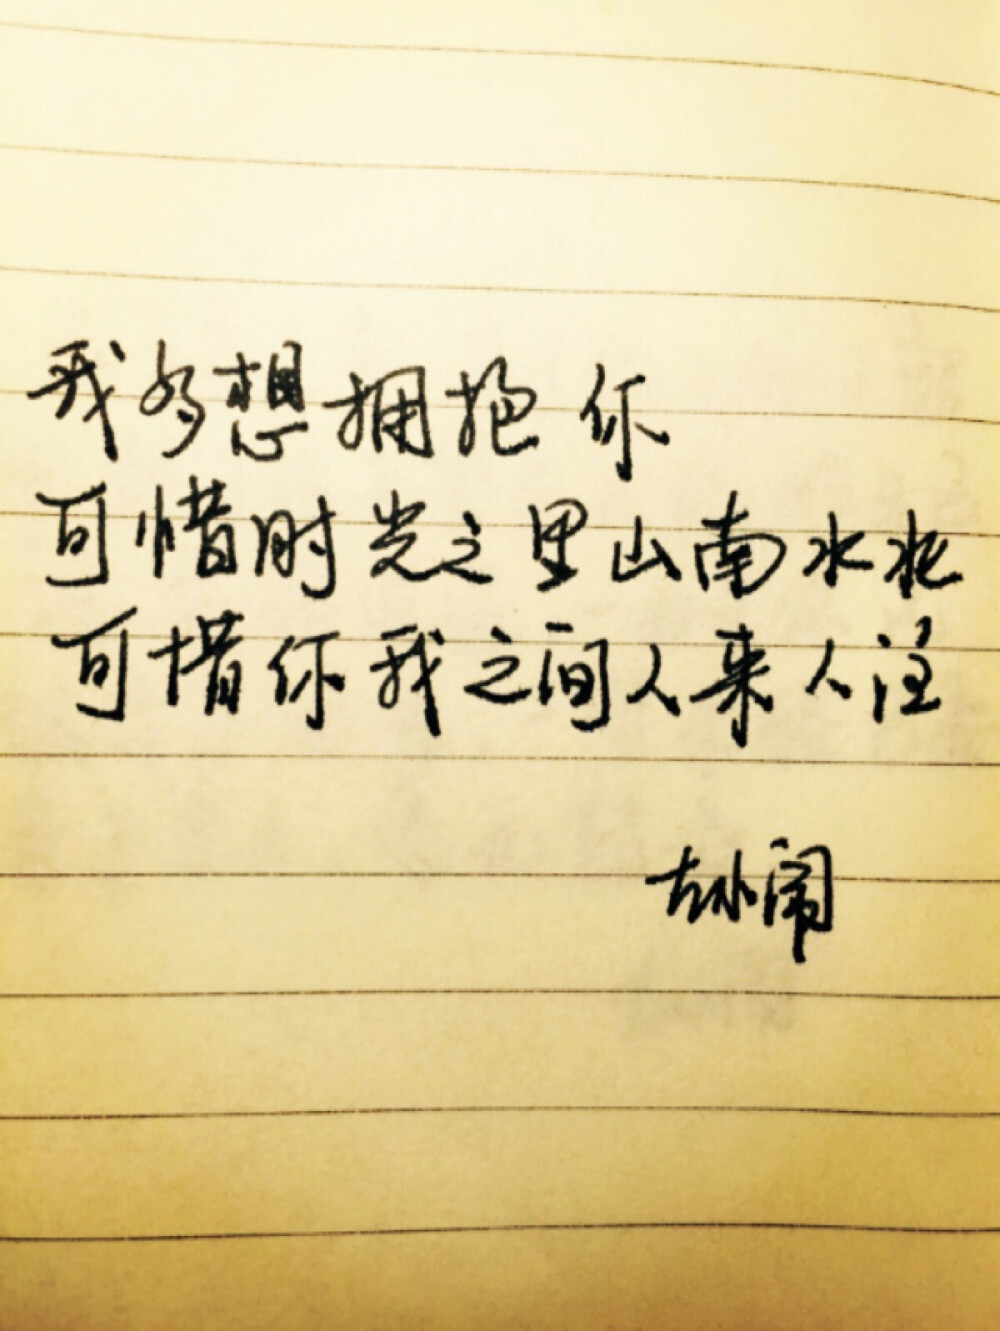 我多想拥抱你
可惜时光之里山南水北
可惜你我之间人来人往
左小闹